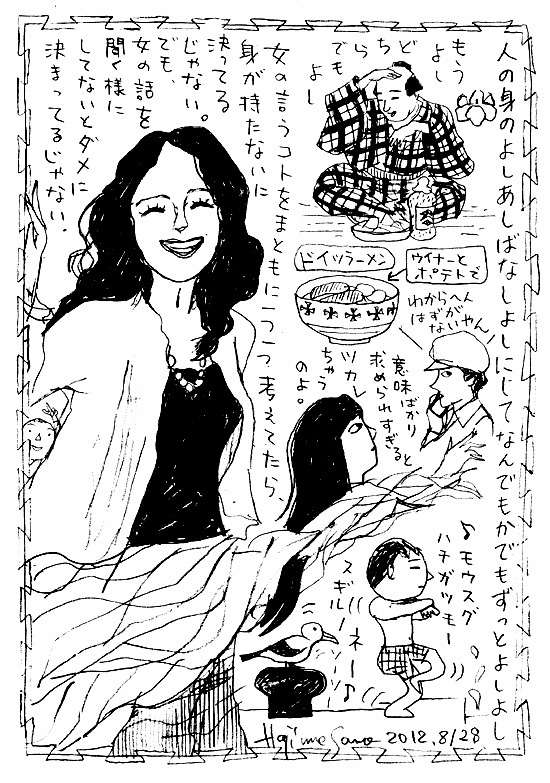 人の身のよしあしばなしよしにしてなんでもかでもずっとよしよし
もう
よし
どちらでもよし
女の言うコトをまともに一つ一つ考えてたら
身が持たないに
決ってる
じゃない。
でも、
女の話を
聞く様に
してないとダメに
決まってるじゃない.
ドイツラーメン
ウイナーと
ポテトで
わからへん
はずが
ないやん
意味ばかり
求められすぎると
ツカレ
ちゃう
のよ。
♪モウスグ
ハチガツモー
スギルーネー♪
Hajime Sano 2012.8/28